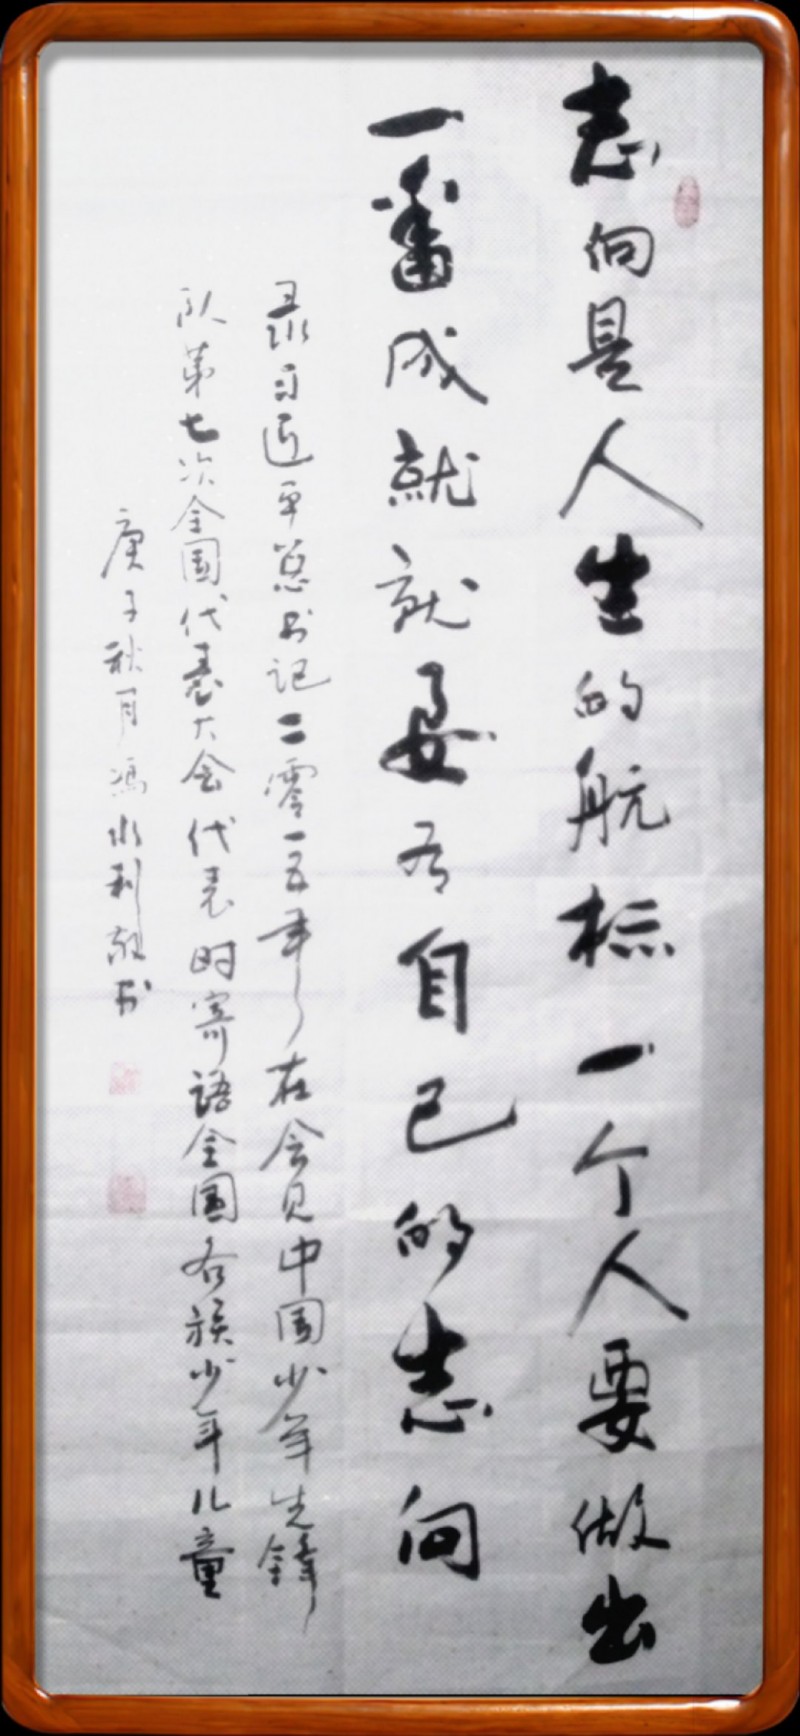 志向是人生的航标一个人要做出
一番成就就要有自己的志向
录习近平总书记二零一五年在会见中国少年先锋
队第七次全国代表大会代表时寄语全国各族少年儿童
庚子秋月冯水利敬书